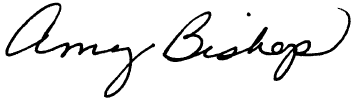 Amy Bishop